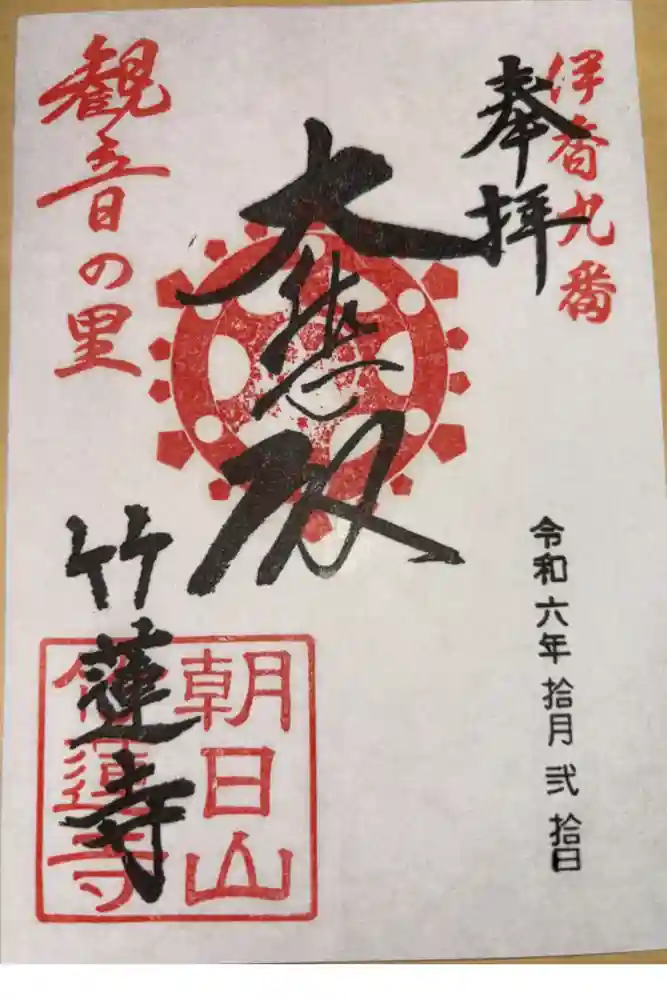 伊香九番
奉拝
大悲殿
観音の里
竹蓮寺
朝日山
竹蓮寺
令和六年 拾月 弐拾日